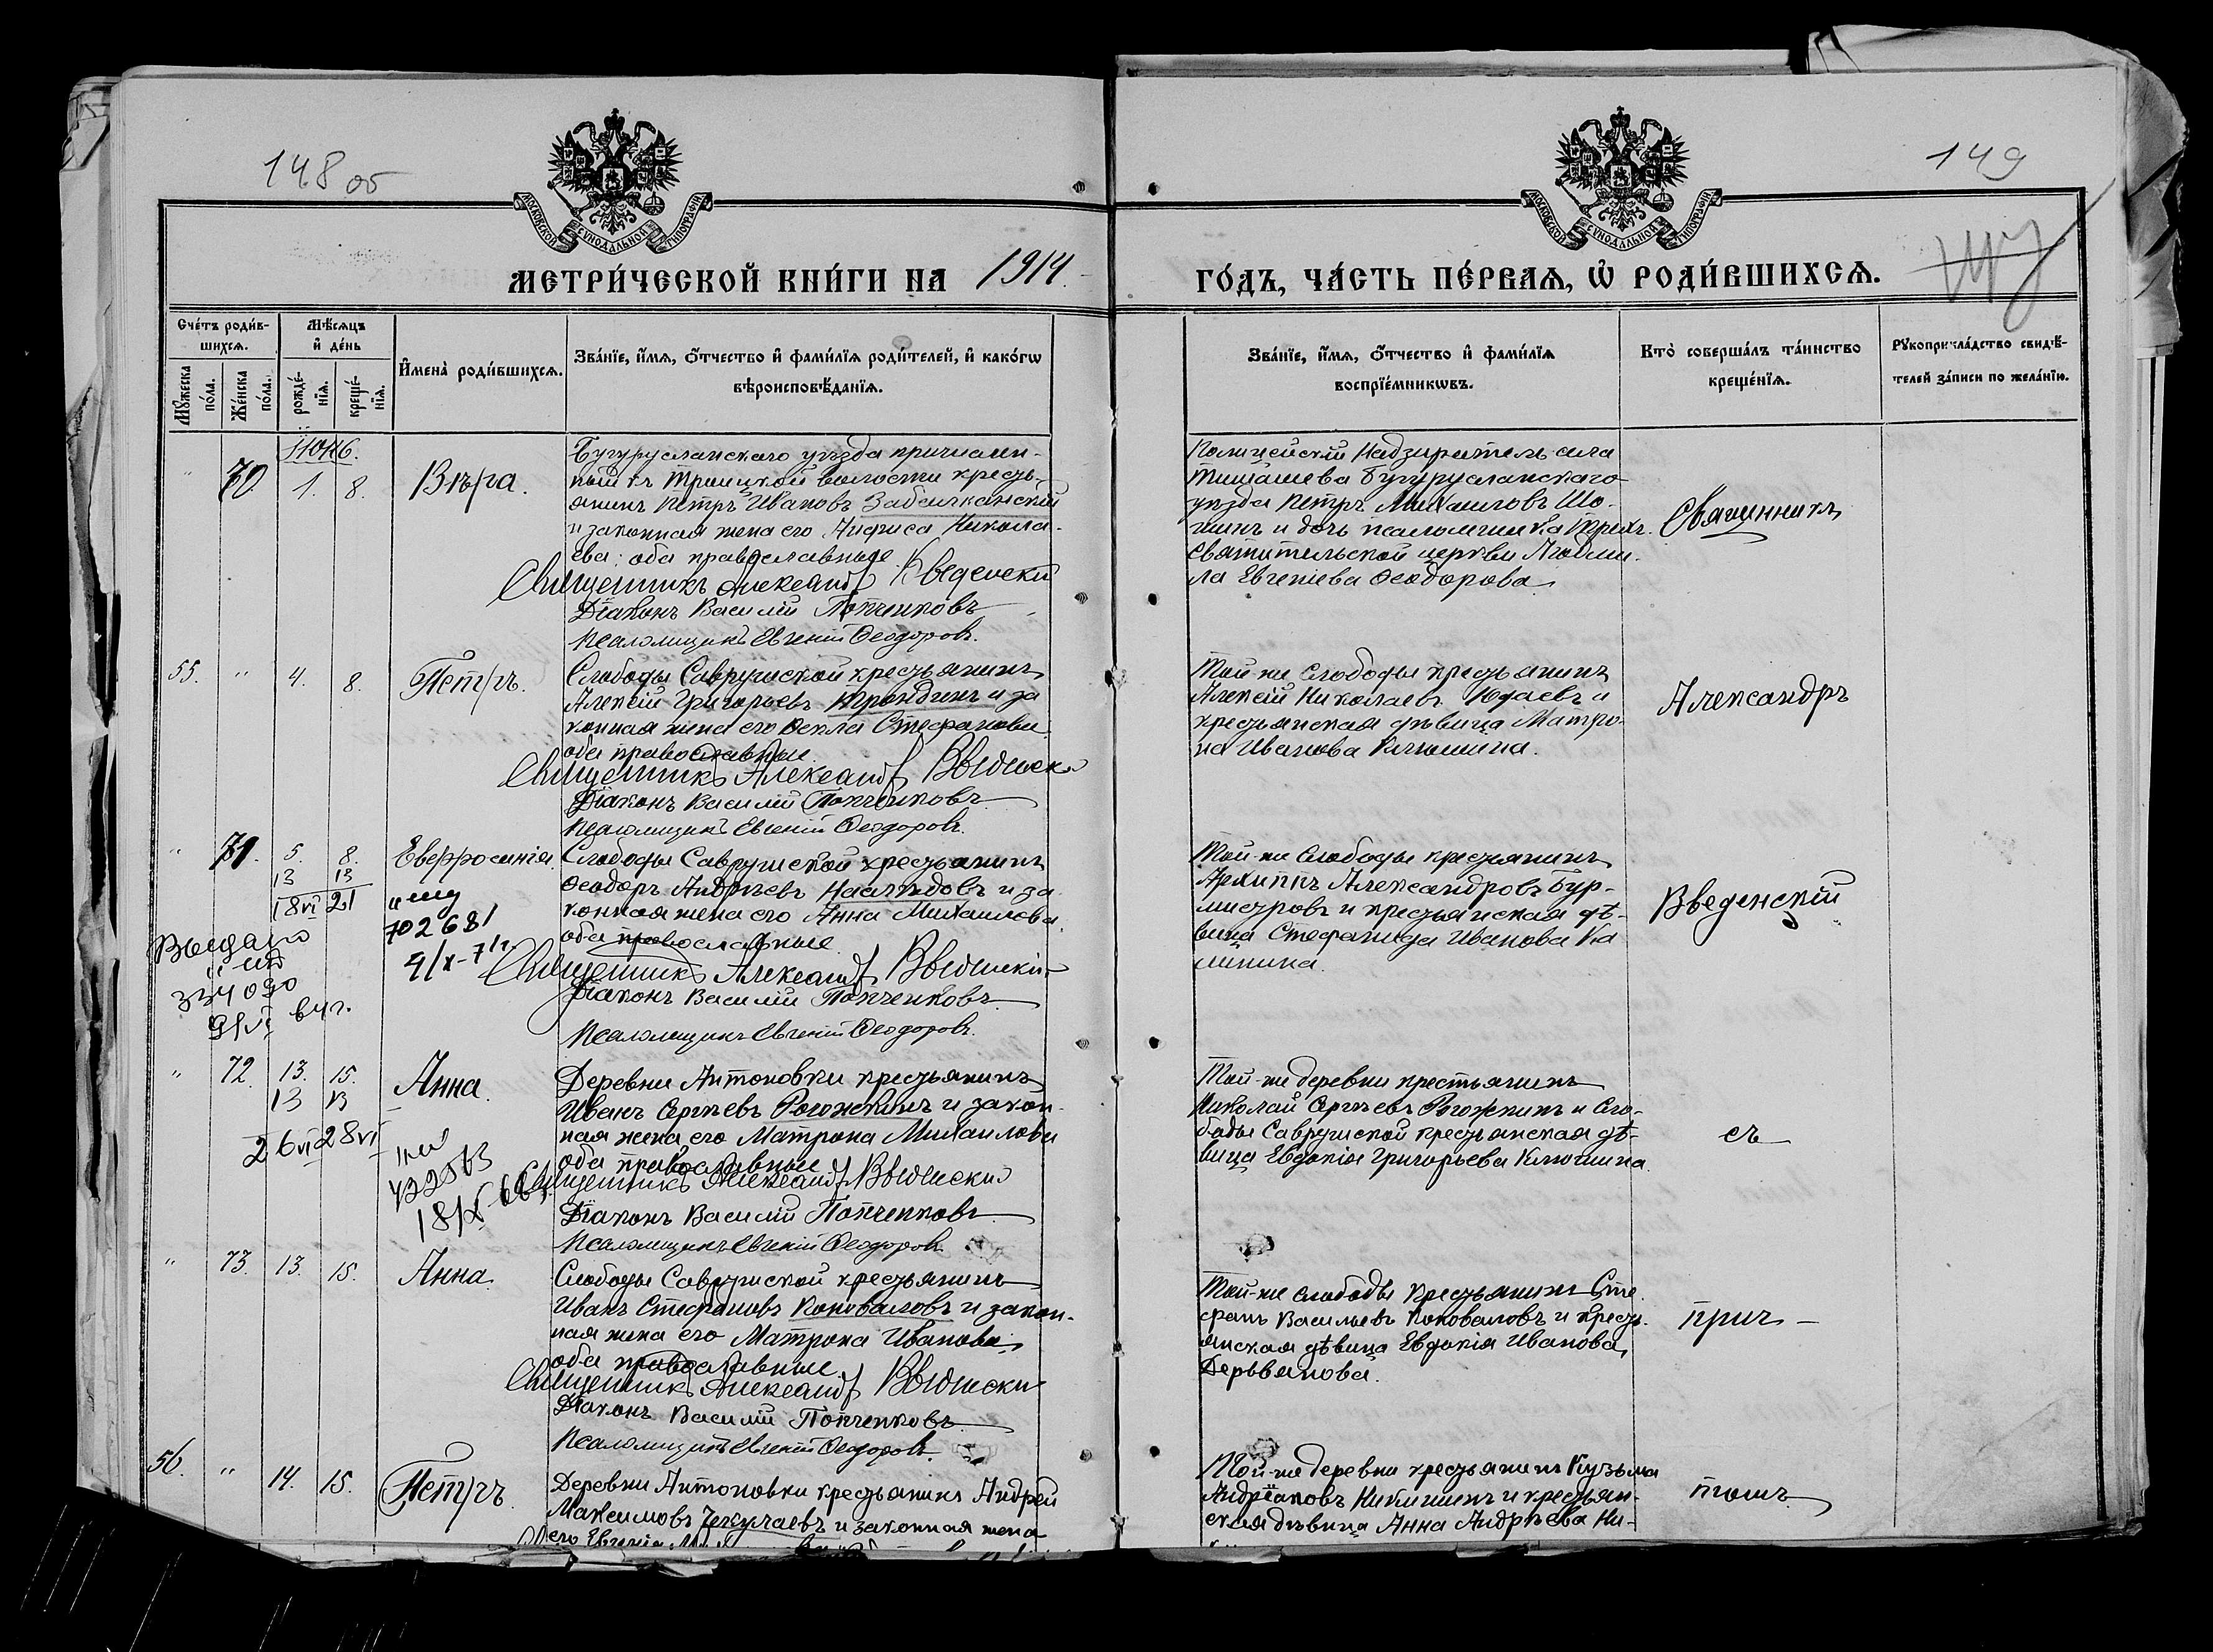 148 об
149
МОСКОВСКОЙ СѴНОДАЛЬНОЙ ТИПОГРАФІИ
МОСКОВСКОЙ СѴНОДАЛЬНОЙ ТИПОГРАФІИ
МЕТРИ́ЧЕСКОЙ КНИ́ГИ НА 1914
ГО́ДЪ, ЧА́СТЬ ПЕ́РВАѦ, Ѿ РОДИ́ВШИХСѦ.
Сче́тъ роди́в-
шихсѧ.
Мꙋ́жеска по́ла.
Же́нска по́ла.
Мѣ́сѧцъ
и҆ де́нь
рожде́-
нїѧ.
креще́-
нїѧ.
И҆мена̀ роди́вшихсѧ.
Зва́нїе, и҆́мѧ, ѻ҆́тчество и҆ фами́лїѧ роди́телей, и҆ како́гѡ
вѣроисповѣ́данїѧ.
Зва́нїе, и҆́мѧ, ѻ҆́тчество и҆ фами́лїѧ
воспрїе́мникѡвъ.
Кто̀ соверша́лъ та́инство
креще́нїѧ.
Рꙋкоприкла́дство свидѣ́-
телей за́писи по жела́нїю.
" 70. 1. 8. Вѣра.
Бугурусланскаго уѣзда причислен-
ный къ Троицкой волости кресть-
янинъ Петръ Ивановъ Забалканскій
и законная жена его Анфиса Никола-
ева; оба православные
Священникъ Александръ Введенскій
Діаконъ Василій Попченковъ
Псаломщикъ Евгеній Ѳеодоровъ.
Полицейскій Надзиратель села
Тимашева Бугурусланскаго
уѣзда Петръ Михаиловъ Шо-
шинъ и дочь псаломщика Трех-
святительской церкви Людми-
ла Евгеніева Ѳеодорова.
Священникъ
55. " 4. 8. Петръ.
Слободы Саврушской крестьянинъ
Алексій Григорьевъ и за
конная жена его Ѳекла Стефанова
оба православные
Священникъ Александръ Введенскій
Діаконъ Василій Попченковъ
Псаломщикъ Евгеній Ѳеодоровъ.
Той-же слободы крестьянинъ
Алексій Николаевъ Юдаевъ и
крестьянская дѣвица Матро-
на Иванова Клюшина.
Александръ
" 71. 5. 8. Евфросинія
13 13
18 VI 21
702681
4/X-71г.
Выдано
334090
Слободы Саврушской крестьянинъ
Ѳеодоръ Андреевъ Наслѣдовъ и за
конная жена его Анна Михаилова
оба православные
Священникъ Александръ Введенскій
Діаконъ Василій Попченковъ
Псаломщикъ Евгеній Ѳеодоровъ.
Той-же слободы крестьянинъ
Архиппъ Александровъ Бур-
мистровъ и крестьянская дѣ-
вица Стефанида Иванова Ка
линина.
Введенскій
" 72. 13. 15. Анна.
13 13
26 VI 28 VI
Деревни Антоновки крестьянинъ
Иванъ Сергѣевъ Рогожкинъ и закон-
ная жена его Матрона Михаилова
оба православные
Священникъ Александръ Введенскій
Діаконъ Василій Попченковъ
Псаломщикъ Евгеній Ѳеодоровъ.
Той-же деревни крестьянинъ
Николай Сергѣевъ Рогожкинъ и Сло-
боды Саврушской крестьянская дѣ-
вица Евдокія Григорьева Клюшина.
съ
" 73. 13. 15. Анна.
Слободы Саврушской крестьянинъ
Иванъ Стефановъ Коноваловъ и закон-
ная жена его Матрона Иванова
оба православные.
Священникъ Александръ Введенскій
Діаконъ Василій Попченковъ
Псаломщикъ Евгеній Ѳеодоровъ.
Той-же слободы крестьянинъ Сте
фанъ Васильевъ Коноваловъ и кресть-
янская дѣвица Евдокія Иванова
прич-
56. " 14. 15. Петръ.
Деревни Антоновки крестьянинъ Андрей
Максимовъ и законная жена
его Евгенія
Той-же деревни крестьянинъ Кузьма
Андріановъ Никишинъ и крестьян-
ская дѣвица Анна Андреева Ни-
томъ